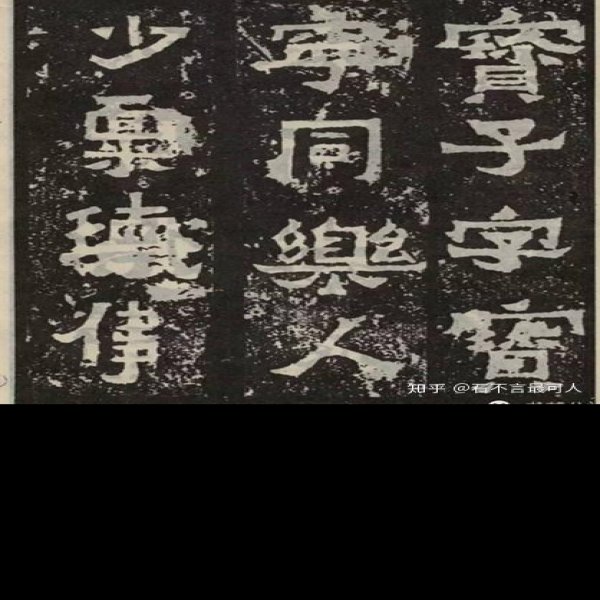 寶子字寶
寧同樂人
少稟瓌偉
知乎 @石不言最可人